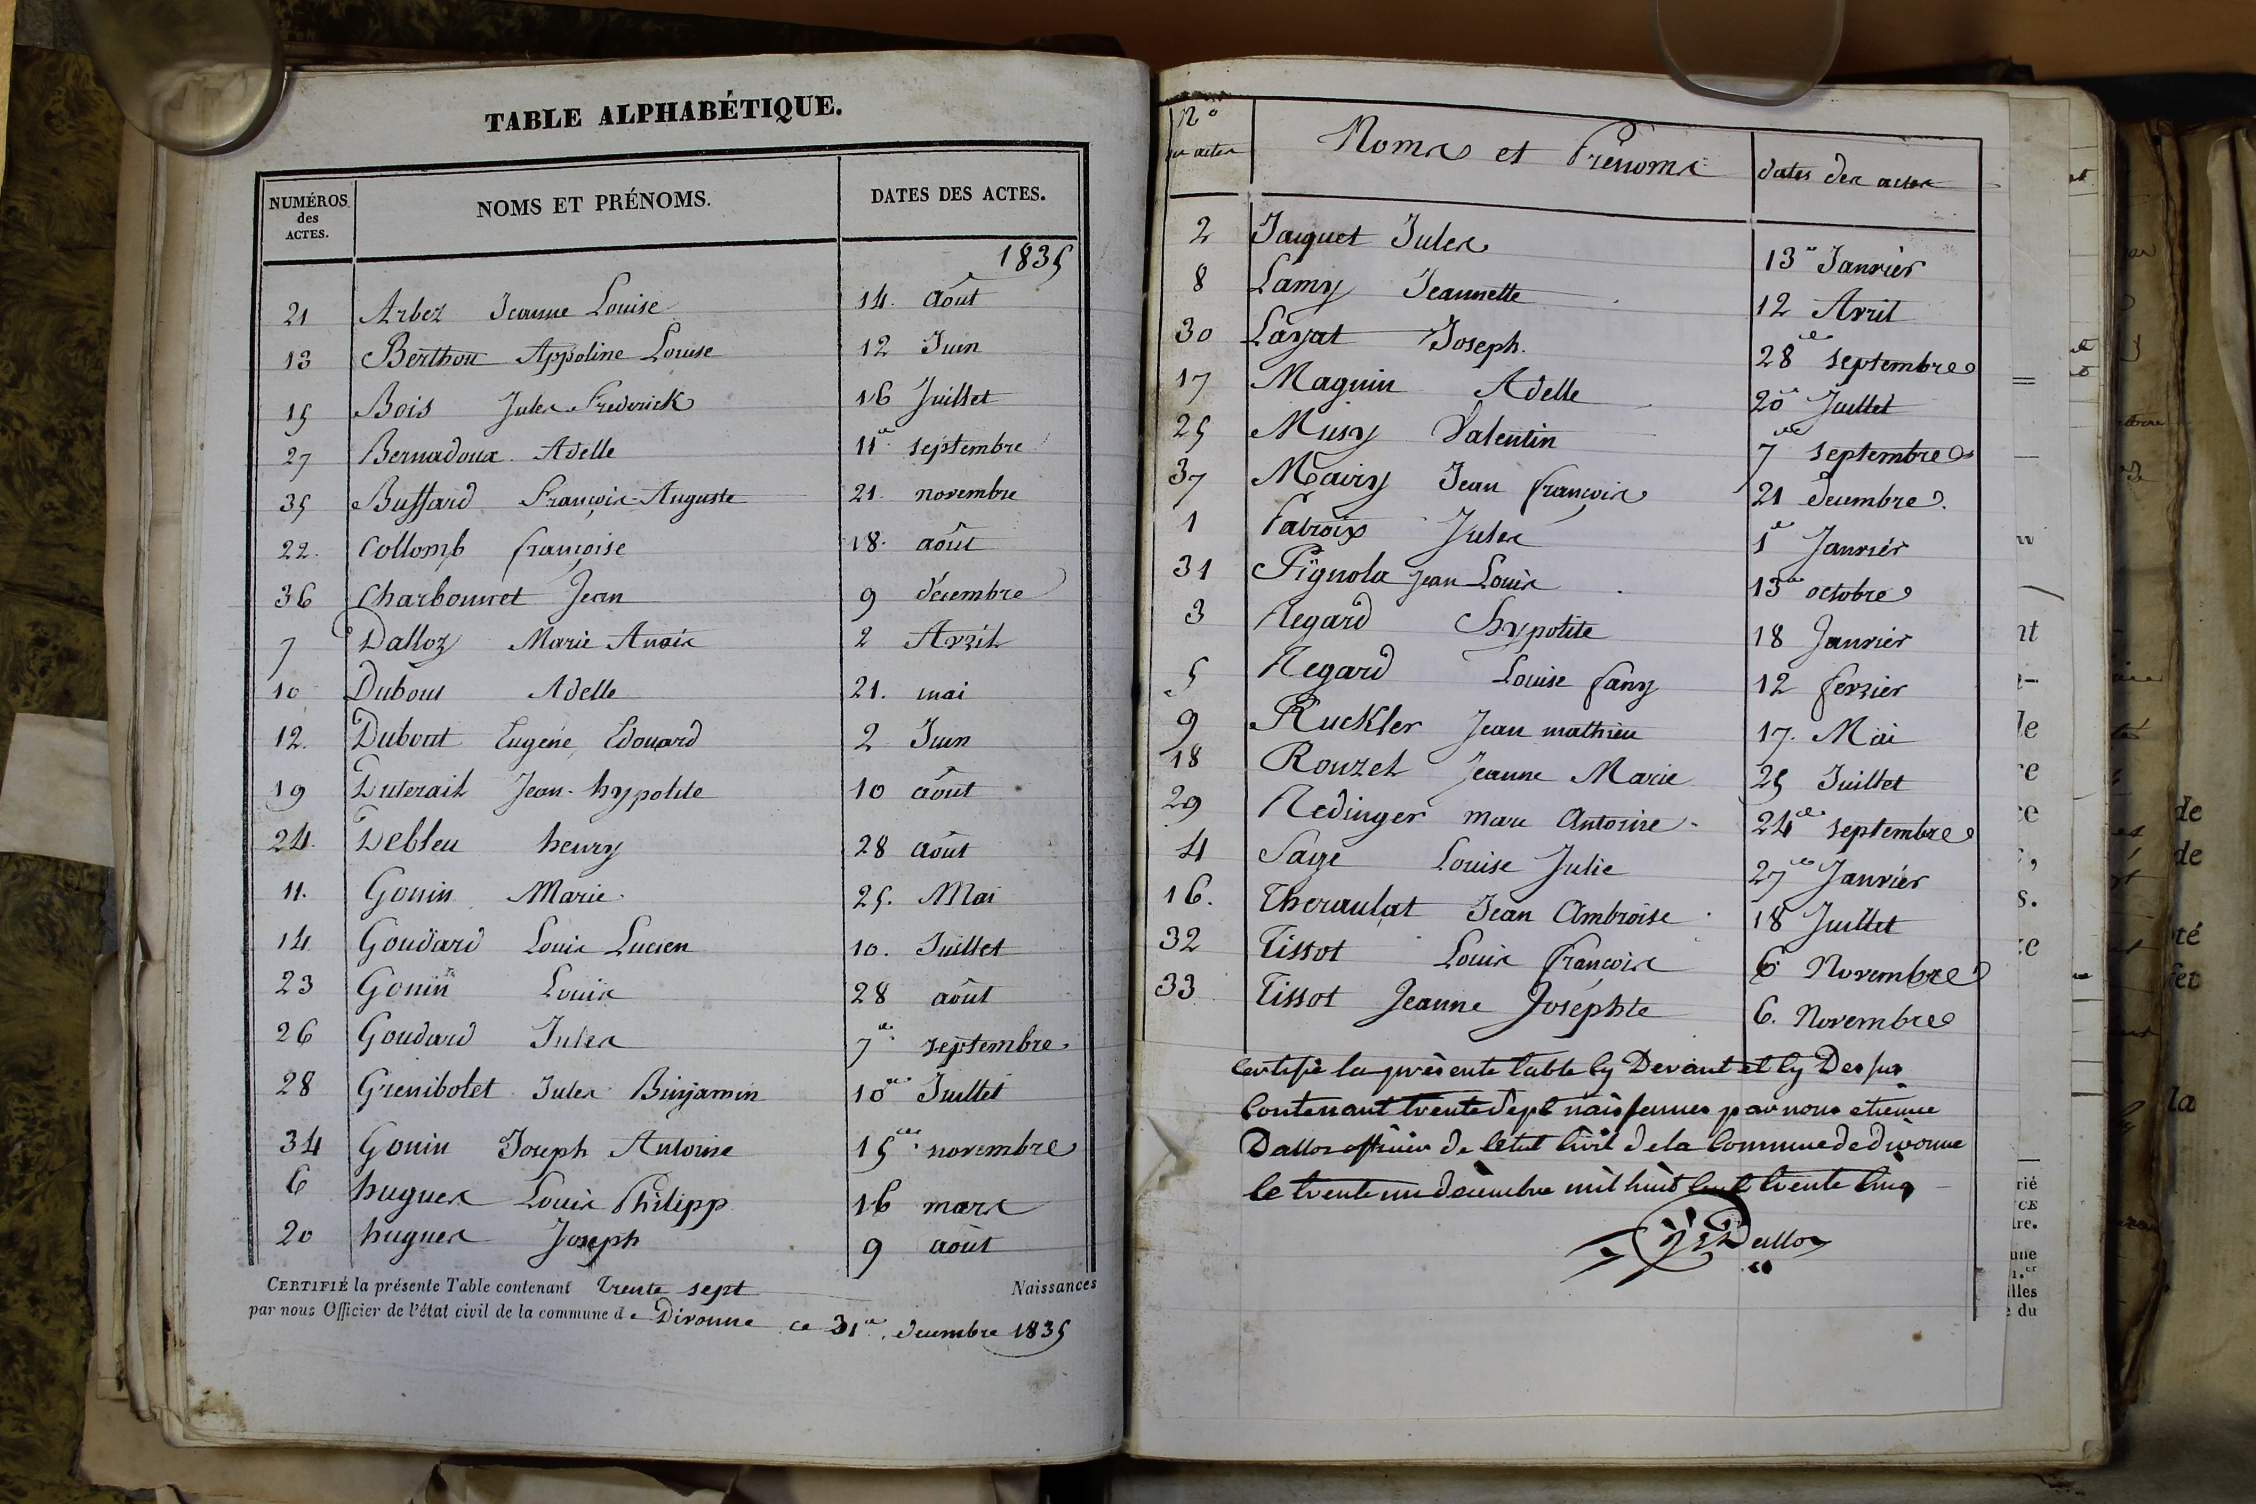 TABLE ALPHABÉTIQUE.
NUMÉROS des ACTES. NOMS ET PRÉNOMS. DATES DES ACTES.
1835
21 Arbez Jeanne Louise 14. août
13 Berthou Appoline Louise 12 Juin
15 Bois Jules Frederick 16 Juillet
27 Bernadoux Adelle 11e septembre
35 Buffard François-Auguste 21. novembre
22. Collomb françoise 18. août
36 Charbonnet Jean 9 décembre
7 Dalloz Marie Anaïs 2 Avril
10 Dubout Adelle 21. mai
12. Dubout Eugéne Edouard 2 Juin
19 Duterail Jean-hypolite 10 août
24. Debleu henry 28 août
11. Gonin Marie 25. Mai
14 Goudard Louis Lucien 10. Juillet
23 Gonin Louis 28 août
26 Goudard Jules 7e septembre
28 Grenibolet Jules Binjamin 10e Juillet
34 Gonin Joseph Antoine 15e novembre
6 hugues Louis Philipp 16 mars
20 hugues Joseph 9 août
CERTIFIÉ la présente Table contenant trente sept Naissances
par nous Officier de l'état civil de la commune de Divonne ce 31e decembre 1835
No des actes Noms et Prénoms dates des actes
2 Jaquet Jules 13e Janvier
8 Lamy Jeannette 12 Avril
30 Layat Joseph. 28e septembre
17 Maguin Adelle 20e Juillet
25 Musy Valentin 7e septembre
37 Maviry Jean françois 21 decembre.
1 Patroix Jules 1e Janvier
31 Pignola Jean Louis 13e octobre
3 Regard hypolite 18 Janvier
5 Regard Louise fany 12 fevrier
9 Ruckler Jean mathieu 17. Mai
18 Rouzet Jeanne Marie 25 Juillet
29 Redinger marc Antoine 24e septembre
4 Saye Louise Julie 27e Janvier
16. Theraulat Jean Ambroise 18 Juillet
32 Tissot Louis françois 6 Novembre
33 Tissot Jeanne Joséphte 6. Novembre
Certifié la présente table Cy Devant et Cy Dessus
Contenant trente Sept naissances par nous etienne
Dalloz officier de l'état Civil de la Commune de divonne
le trente un décembre mil huit Cent trente Cinq
Dalloz